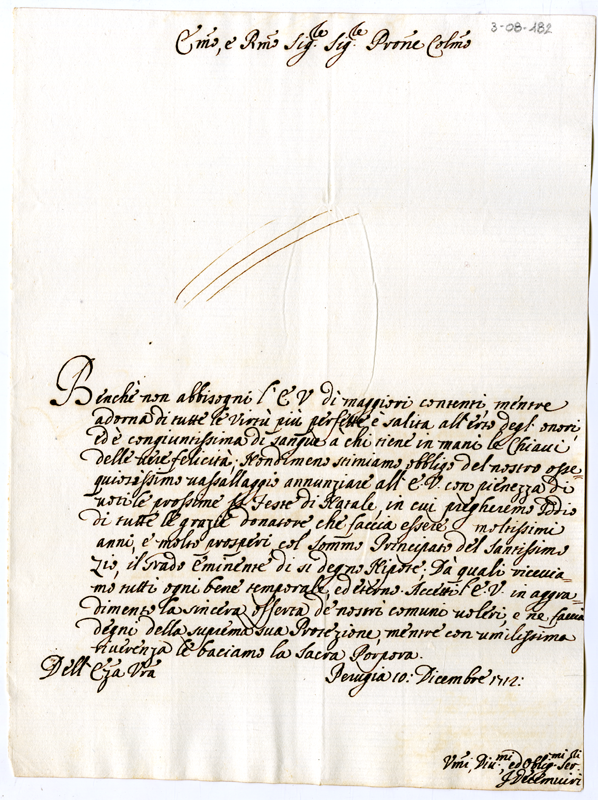 3-08-182
Emo, e Rmo Sig.re Sig.re Prone Colmo
Benche non abbisogni l'E V di maggiori contenti, mentre
adorna di tutte le Virtù più perfette è salita all'erto degl'onori
ed è congiuntissima di sangue a chi tiene in mani le Chiavi
delle vere felicità; Nondimeno stimiamo obbligo del nostro osse=
quiosissimo vassallaggio annunziare all'E. V. con pienezza di
voti le prossime Feste di Natale, in cui pregheremo Iddio
di tutte le grazie donatore che faccia essere moltissimi
anni, e molto prosperi col sommo Principato del Santissimo
Zio, il Grado eminente di si degno Nipote. Dà quali ricevia=
mo tutti ogni bene temporale, ed eterno. Accetti l'E. V. in aggra=
dimento la sincera offerta de nostri comuni voleri, e ne faccia
degni della suprema sua Protezione mentre con umilissima
riverenza le baciamo la Sacra Porpora.
Dell'Eza Vra Perugia 10: Dicembre 1712:
Vmi, Diu.mi ed Oblig.mi Ser.li
J Decemviri